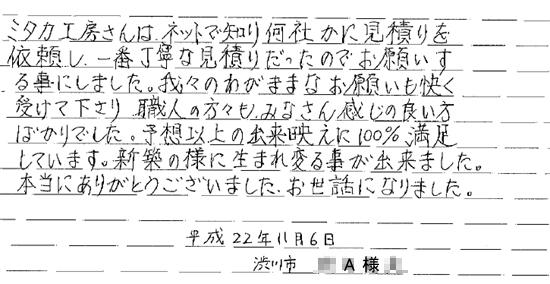 ミタカ工房さんは、ネットで知り何社かに見積りを
依頼し、一番丁寧な見積りだったのでお願いす
る事にしました。我々のわがままなお願いも快く
受けて下さり、職人の方々も、みなさん感じの良い方
ばかりでした。予想以上の出来映えに100%満足
しています。新築の様に生まれ変る事が出来ました。
本当にありがとうございました、お世話になりました。
平成22年11月6日
渋川市 A様